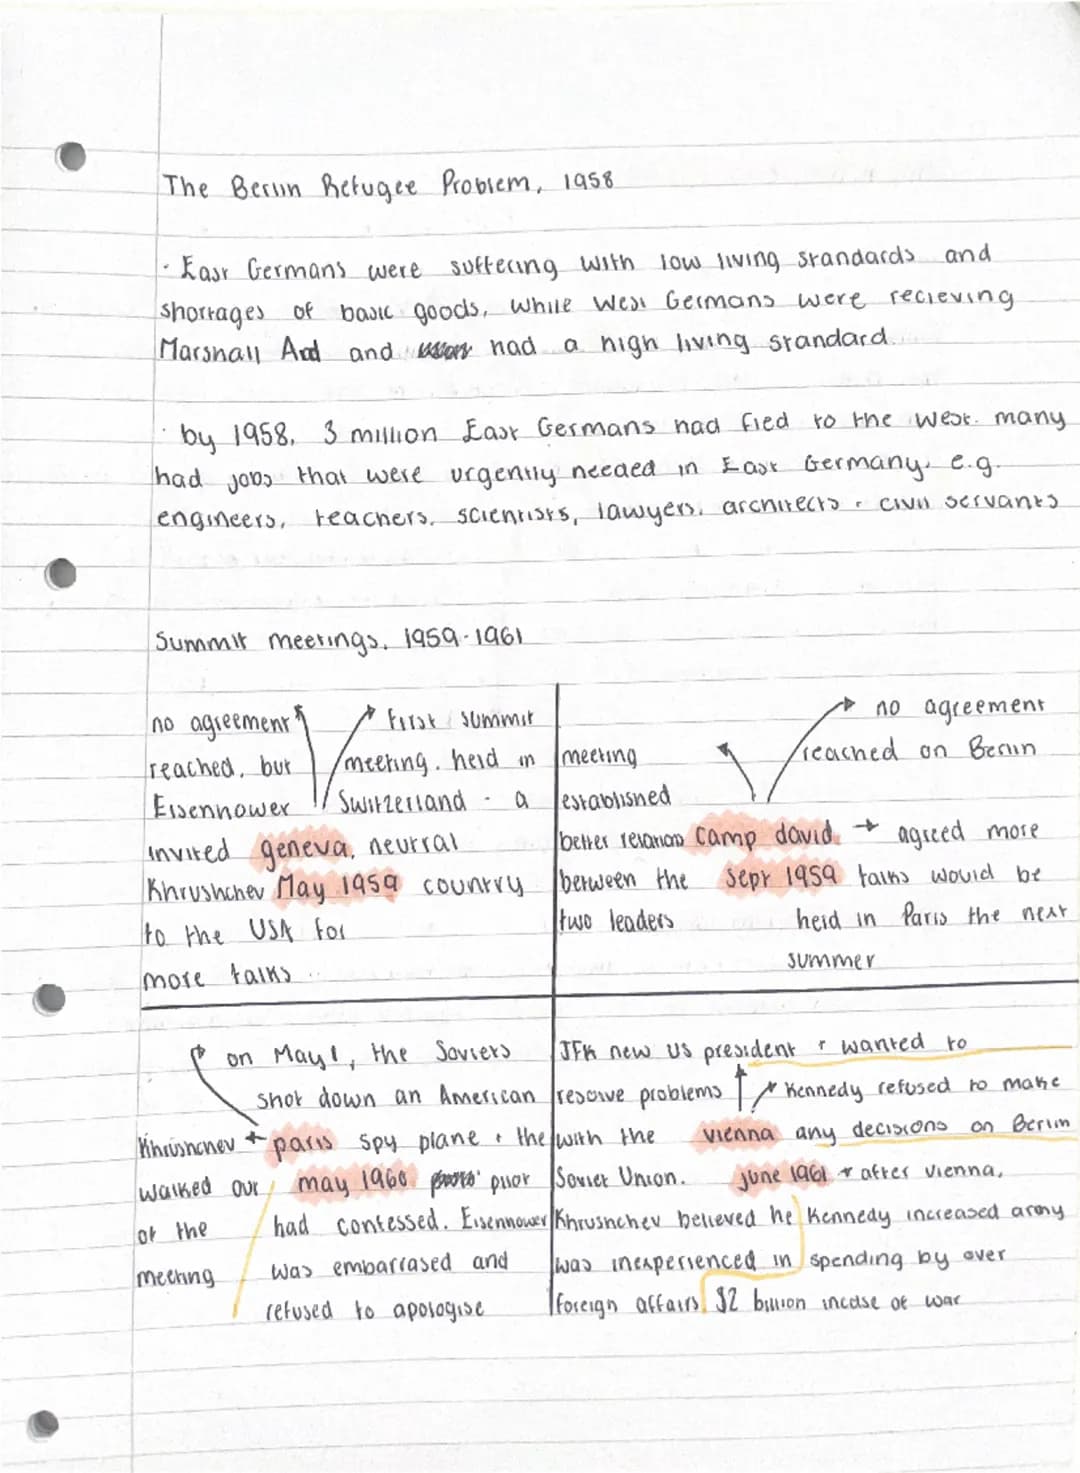 The Berlin Refugee Problem, 1958
· East Germans were suffering with low living standards and
shortages of basic goods, while West Germans were recieving
Marshall Aid and had a high living standard.
· by 1958, 3 million East Germans had fled to the west. many
had jobs that were urgently needed in East Germany, e.g.
engineers, teachers, scientists, lawyers, architects + civil servants
Summit meetings, 1959-1961
no agreement
reached, but
Eisenhower
invited
Khrushchev
to the USA for
more talks
First summit
meeting. held in
Switzerland - a
neutral
country
geneva,
May 1959
meeting
established
better relations
between the
two leaders
camp david
Sept 1959
no agreement
reached on Berlin
→ agreed more
talks would be
held in Paris the next
summer
on May 1, the Soviets
shot down an American
spy plane + the
pilot
had confessed. Eisenhower
was embarrased and
refused to apologise
Khrushchev
walked out
of the
meeting
paris
may 1960
JFK new US president + wanted to
resolve problems
with the
Soviet Union.
Khrushchev believed he
was inexperienced in
foreign affairs
vienna
june 1961
Kennedy refused to make
any decisions on Berlin
after vienna,
Kennedy increased army
spending by over
$2 billion incase of war